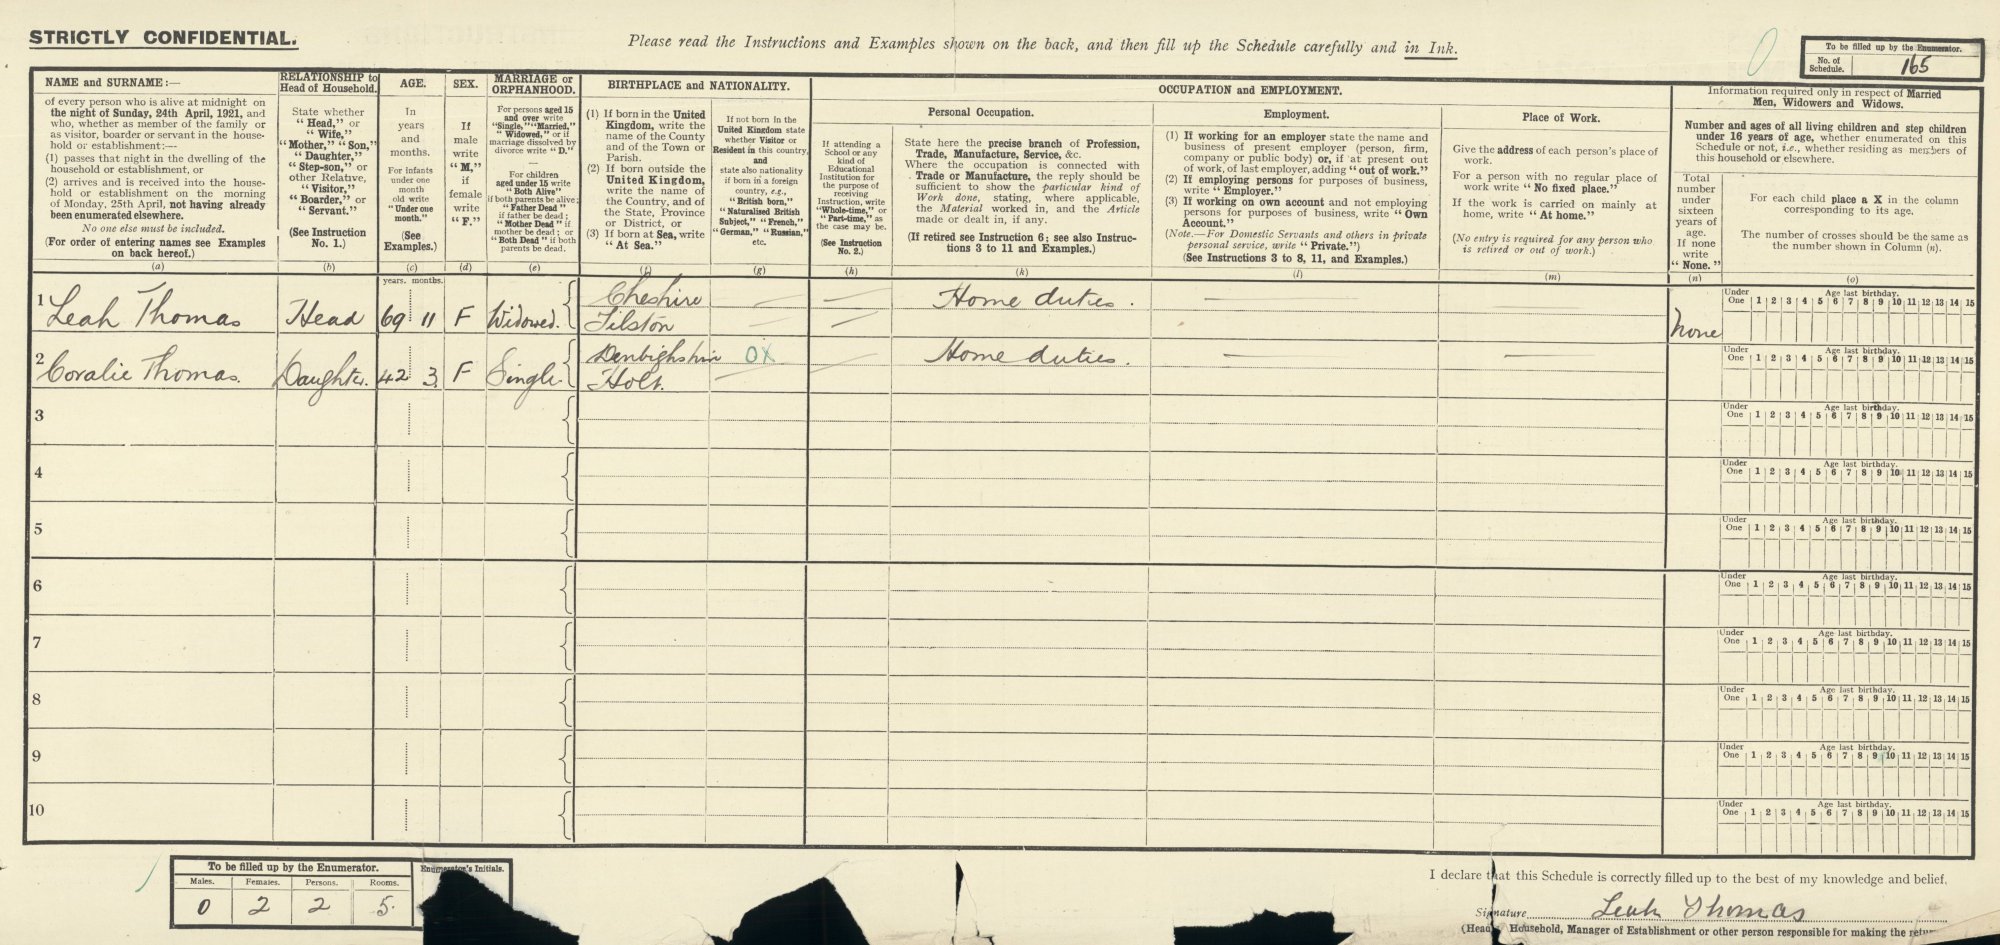 STRICTLY CONFIDENTIAL.
Please read the Instructions and Examples shown on the back, and then fill up the Schedule carefully and in Ink.
To be filled up by the Enumerator.
No. of Schedule. 165
NAME and SURNAME:—
of every person who is alive at midnight on
the night of Sunday, 24th April, 1921, and
who, whether as member of the family or
as visitor, boarder or servant in the house-
hold or establishment:—
(1) passes that night in the dwelling of the
household or establishment, or
(2) arrives and is received into the house-
hold or establishment on the morning
of Monday, 25th April, not having already
been enumerated elsewhere.
No one else must be included.
(For order of entering names see Examples
on back hereof.)
(a)
RELATIONSHIP to
Head of Household.
State whether
"Head," or
"Wife,"
"Mother," "Son,"
"Daughter,"
"Step-son," or
other Relative,
"Visitor,"
"Boarder," or
"Servant."
(See Instruction
No. 1.)
(b)
AGE.
In
years
and
months.
For infants
under one
month
old write
"Under one
month."
(See
Examples.)
(c)
SEX.
If
male
write
"M,"
if
female
write
"F."
(d)
MARRIAGE or
ORPHANHOOD.
For persons aged 15
and over write
"Single," "Married,"
"Widowed," or if
marriage dissolved by
divorce write "D."
—
For children
aged under 15 write
"Both Alive"
if both parents be alive;
"Father Dead"
if father be dead;
"Mother Dead" if
mother be dead; or
"Both Dead" if both
parents be dead.
(e)
BIRTHPLACE and NATIONALITY.
(1) If born in the United
Kingdom, write the
name of the County
and of the Town or
Parish.
(2) If born outside the
United Kingdom,
write the name of
the Country, and of
the State, Province
or District, or
(3) If born at Sea, write
"At Sea."
(f)
If not born in the
United Kingdom state
whether Visitor or
Resident in this country,
and
state also nationality
if born in a foreign
country, e.g.,
"British born,"
"Naturalised British
Subject," "French,"
"German," "Russian,"
etc.
(g)
OCCUPATION and EMPLOYMENT.
If attending a
School or any
kind of
Educational
Institution for
the purpose of
receiving
Instruction, write
"Whole-time," or
"Part-time," as
the case may be.
(See Instruction
No. 2.)
(h)
Personal Occupation.
State here the precise branch of Profession,
Trade, Manufacture, Service, &c.
Where the occupation is connected with
Trade or Manufacture, the reply should be
sufficient to show the particular kind of
Work done, stating, where applicable,
the Material worked in, and the Article
made or dealt in, if any.
(If retired see Instruction 6; see also Instruc-
tions 3 to 11 and Examples.)
(k)
Employment.
(1) If working for an employer state the name and
business of present employer (person, firm,
company or public body) or, if at present out
of work, of last employer, adding "out of work."
(2) If employing persons for purposes of business,
write "Employer."
(3) If working on own account and not employing
persons for purposes of business, write "Own
Account."
(Note.—For Domestic Servants and others in private
personal service, write "Private.")
(See Instructions 3 to 8, 11, and Examples.)
(l)
Place of Work.
Give the address of each person's place of
work.
For a person with no regular place of
work write "No fixed place."
If the work is carried on mainly at
home, write "At home."
(No entry is required for any person who
is retired or out of work.)
(m)
Information required only in respect of Married
Men, Widowers and Widows.
Number and ages of all living children and step children
under 16 years of age, whether enumerated on this
Schedule or not, i.e., whether residing as members of
this household or elsewhere.
Total
number
under
sixteen
years of
age.
If none
write
"None."
(n)
For each child place a X in the column
corresponding to its age.
The number of crosses should be the same as
the number shown in Column (n).
(o)
years. months.
1 Leah Thomas Head 69 11 F Widowed. Cheshire Tilston Home duties. None
Under One Age last birthday. 1 2 3 4 5 6 7 8 9 10 11 12 13 14 15
2 Coralie Thomas. Daughter. 42 3 F Single. Denbighshire OX Holt. Home duties.
Under One Age last birthday. 1 2 3 4 5 6 7 8 9 10 11 12 13 14 15
3
Under One Age last birthday. 1 2 3 4 5 6 7 8 9 10 11 12 13 14 15
4
Under One Age last birthday. 1 2 3 4 5 6 7 8 9 10 11 12 13 14 15
5
Under One Age last birthday. 1 2 3 4 5 6 7 8 9 10 11 12 13 14 15
6
Under One Age last birthday. 1 2 3 4 5 6 7 8 9 10 11 12 13 14 15
7
Under One Age last birthday. 1 2 3 4 5 6 7 8 9 10 11 12 13 14 15
8
Under One Age last birthday. 1 2 3 4 5 6 7 8 9 10 11 12 13 14 15
9
Under One Age last birthday. 1 2 3 4 5 6 7 8 9 10 11 12 13 14 15
10
Under One Age last birthday. 1 2 3 4 5 6 7 8 9 10 11 12 13 14 15
To be filled up by the Enumerator.
Enumerator's Initials.
Males. Females. Persons. Rooms.
0 2 2 5.
I declare that this Schedule is correctly filled up to the best of my knowledge and belief.
Signature Leah Thomas
(Head Household, Manager of Establishment or other person responsible for making the